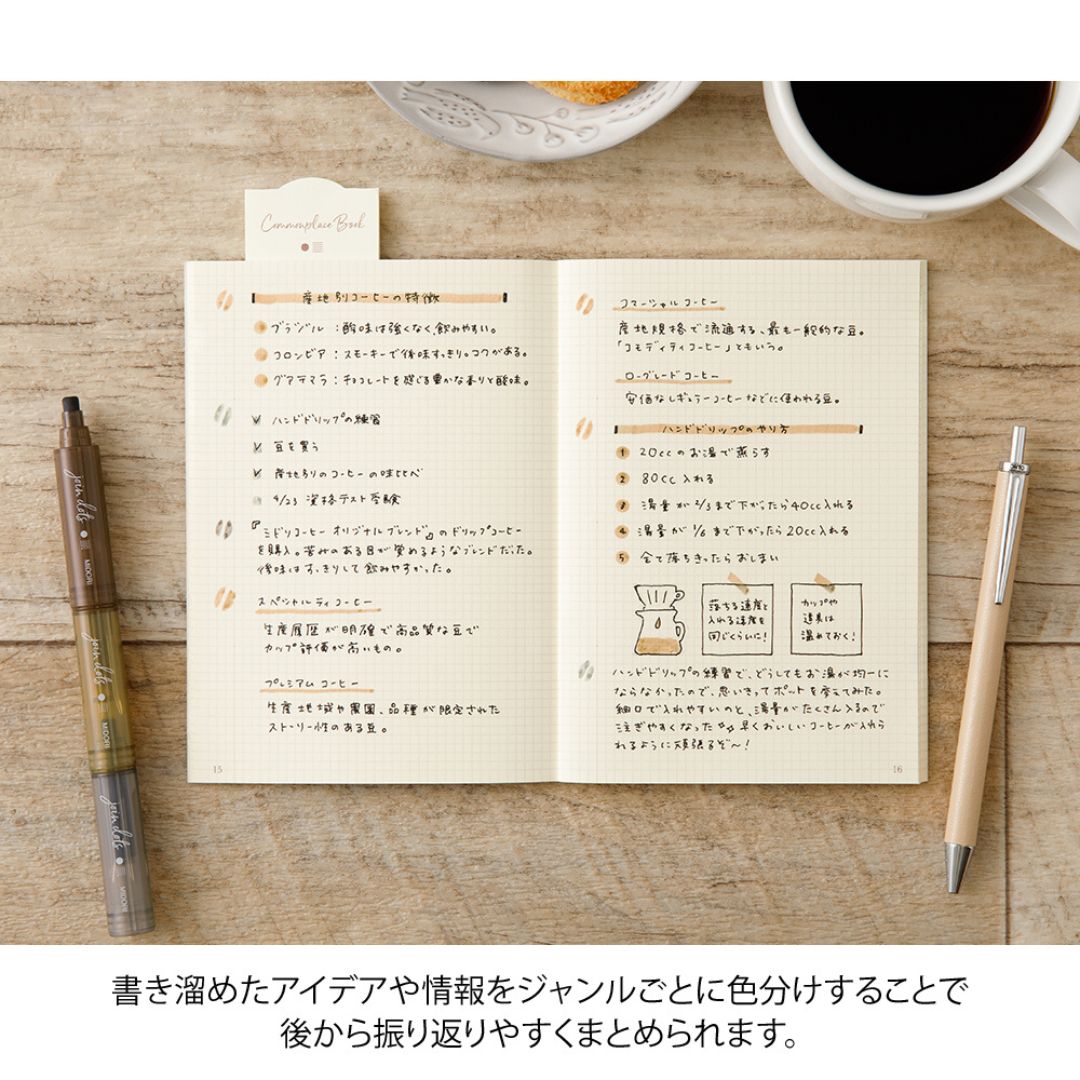 Commonplace Book
産地別コーヒーの特徴
ブラジル：酸味は強くなく、飲みやすい。
コロンビア：スモーキーで後味すっきり。コクがある。
グアテマラ：チョコレートを感じる豊かな香りと酸味。
ハンドドリップの練習
豆を買う
産地別のコーヒーの味比べ
4/23 資格テスト受験
『ミドリコーヒー オリジナルブレンド』のドリップコーヒー
を購入。苦みのある目が覚めるようなブレンドだった。
後味はすっきりして飲みやすかった。
スペシャルティコーヒー
生産履歴が明確で高品質な豆で
カップ評価が高いもの。
プレミアムコーヒー
生産地域や農園、品種が限定された
ストーリー性のある豆。
15
コマーシャルコーヒー
産地規格で流通する、最も一般的な豆。
「コモディティコーヒー」ともいう。
ローグレードコーヒー
安価なレギュラーコーヒーなどに使われる豆。
ハンドドリップのやり方
1 20ccのお湯で蒸らす
2 80cc入れる
3 湯量が2/3まで下がったら40cc入れる
4 湯量が1/6まで下がったら20cc入れる
5 全て落ちきったらおしまい
落ちる速度と
入れる速度を
同じくらいに!
カップや
道具は
温めておく!
ハンドドリップの練習で、どうしてもお湯が均一に
ならなかったので、思いきってポットを変えてみた。
細口で入れやすいのと、湯量がたくさん入るので
注ぎやすくなった 早くおいしいコーヒーが入れら
れるように頑張るぞ〜!
16
join dots
MIDORI
MIDORI
join dots
MIDORI
書き溜めたアイデアや情報をジャンルごとに色分けすることで
後から振り返りやすくまとめられます。